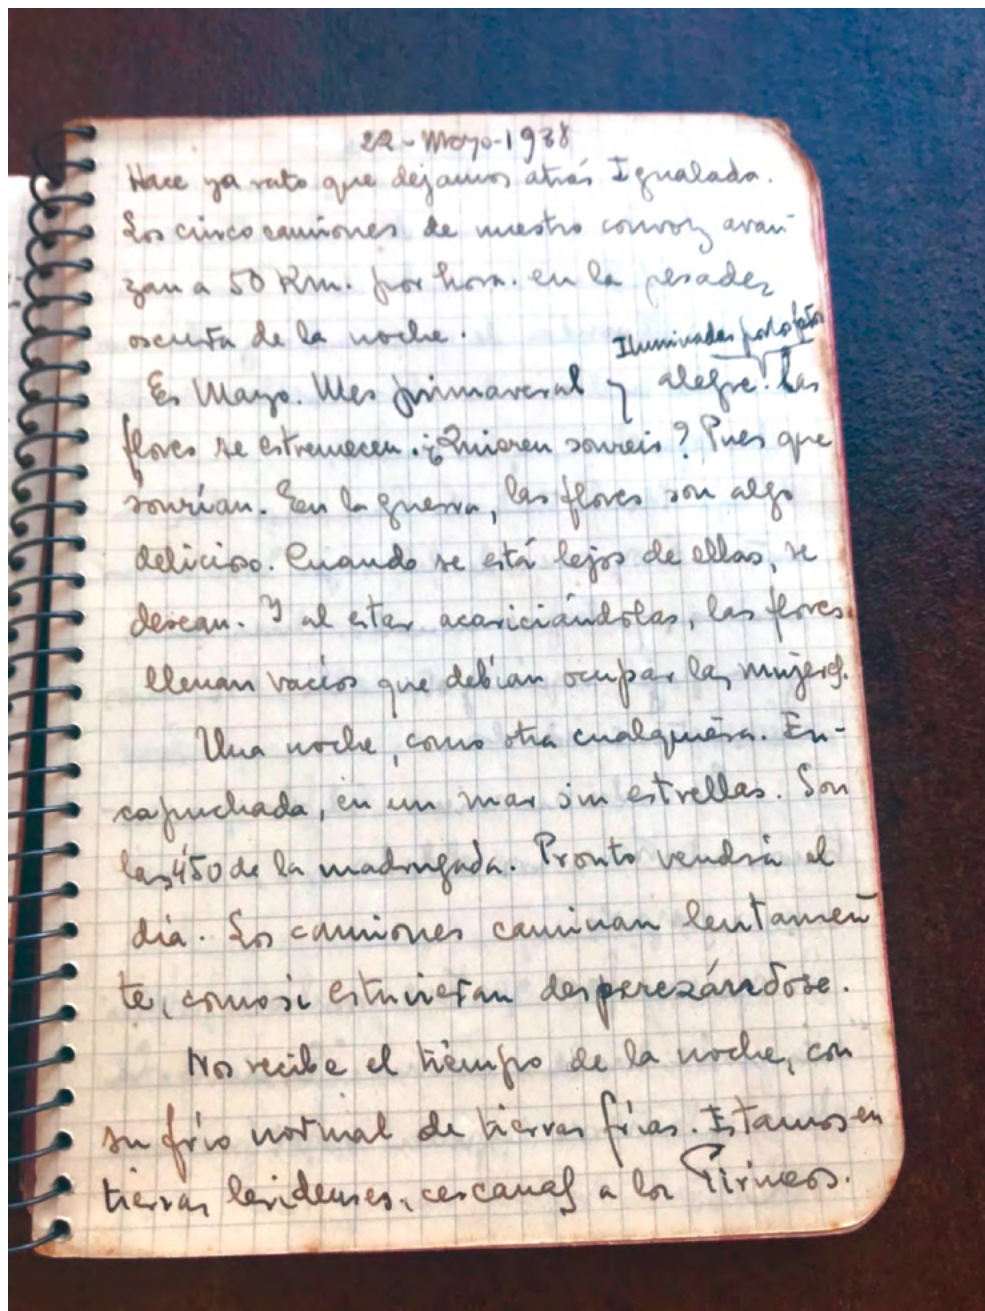 22-Mayo-1938
Hace ya rato que dejamos atrás Igualada.
Los cinco camiones de nuestro convoy avan-
zan a 50 Km. por hora. en la pesadez
oscura de la noche.
Iluminadas por los faros
Es Mayo. Mes primaveral y alegre. Las
flores se estremecen. ¿Quieren sonreir? Pues que
sonrían. En la guerra, las flores son algo
delicioso. Cuando se está lejos de ellas, se
desean. Y al estar acariciándolas, las flores
llenan vacíos que debían ocupar las mujeres.
Una noche, como otra cualquiera. En-
capuchada, en un mar sin estrellas. Son
las 4'50 de la madrugada. Pronto vendrá el
día. Los camiones caminan lentamen-
te, como si estuvieran desperezándose.
Nos recibe el tiempo de la noche, con
su frío normal de tierras frías. Estamos en
tierras leridenses, cercanas a los Pirineos.